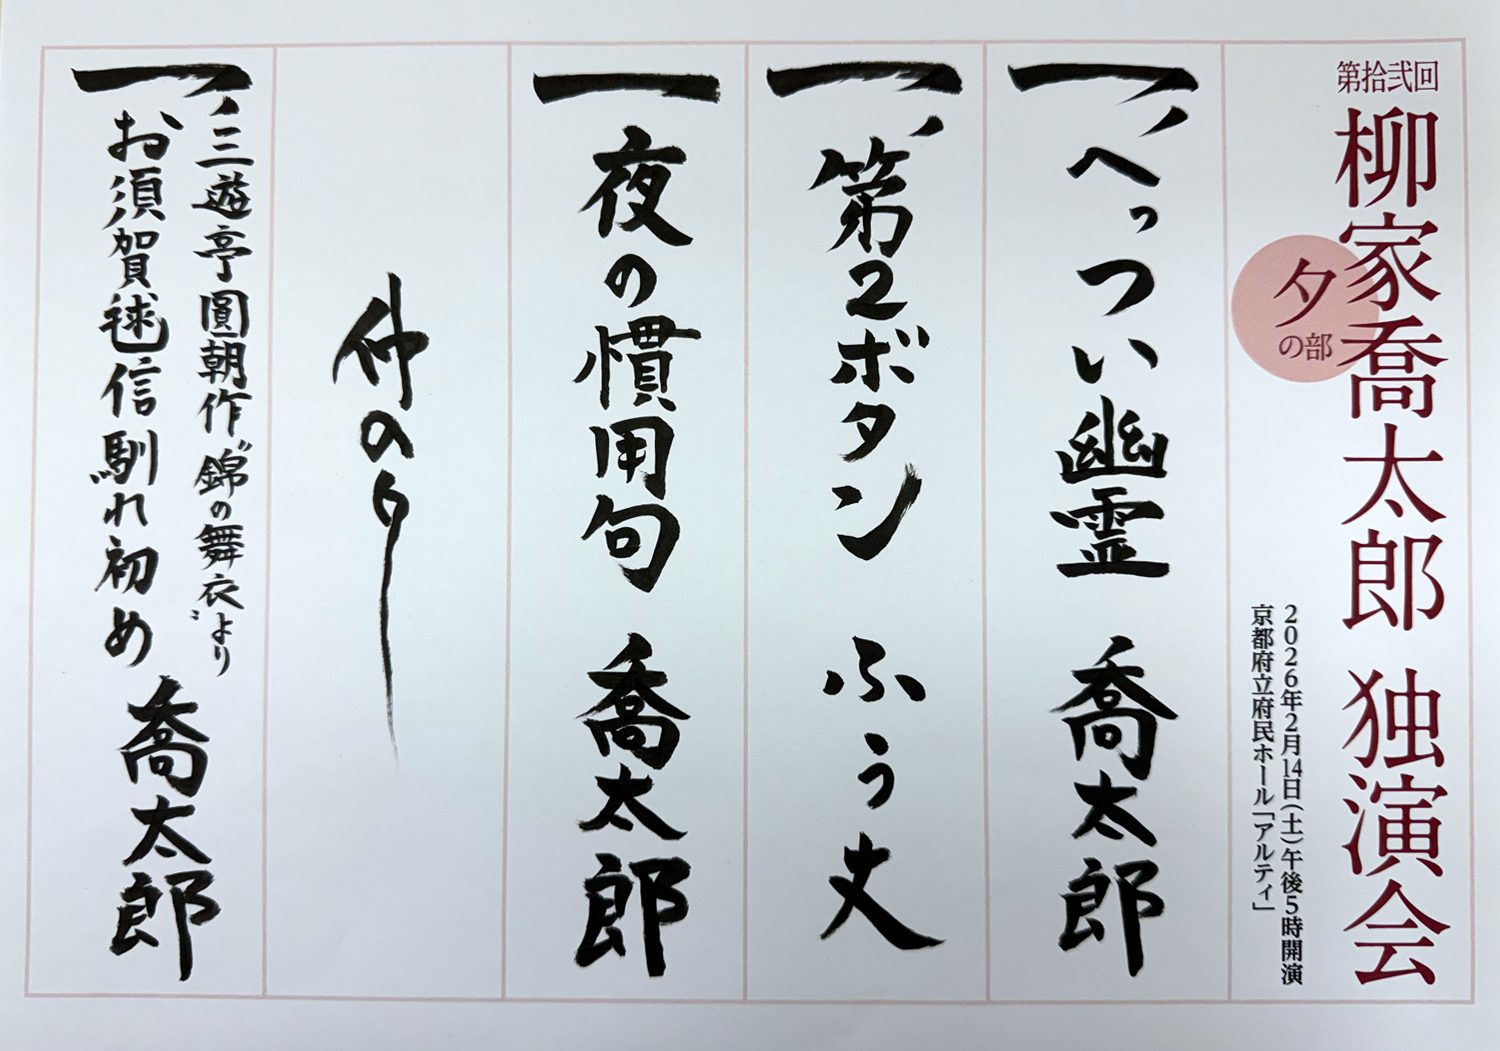 第拾弐回
柳家喬太郎 独演会
夕の部
2026年2月14日(土)午後5時開演
京都府立府民ホール「アルティ」
一、へっつい幽霊 喬太郎
一、第2ボタン ふう丈
一 夜の慣用句 喬太郎
仲のり
一、三遊亭圓朝作〝錦の舞衣〟より
お須賀毬信馴れ初め 喬太郎